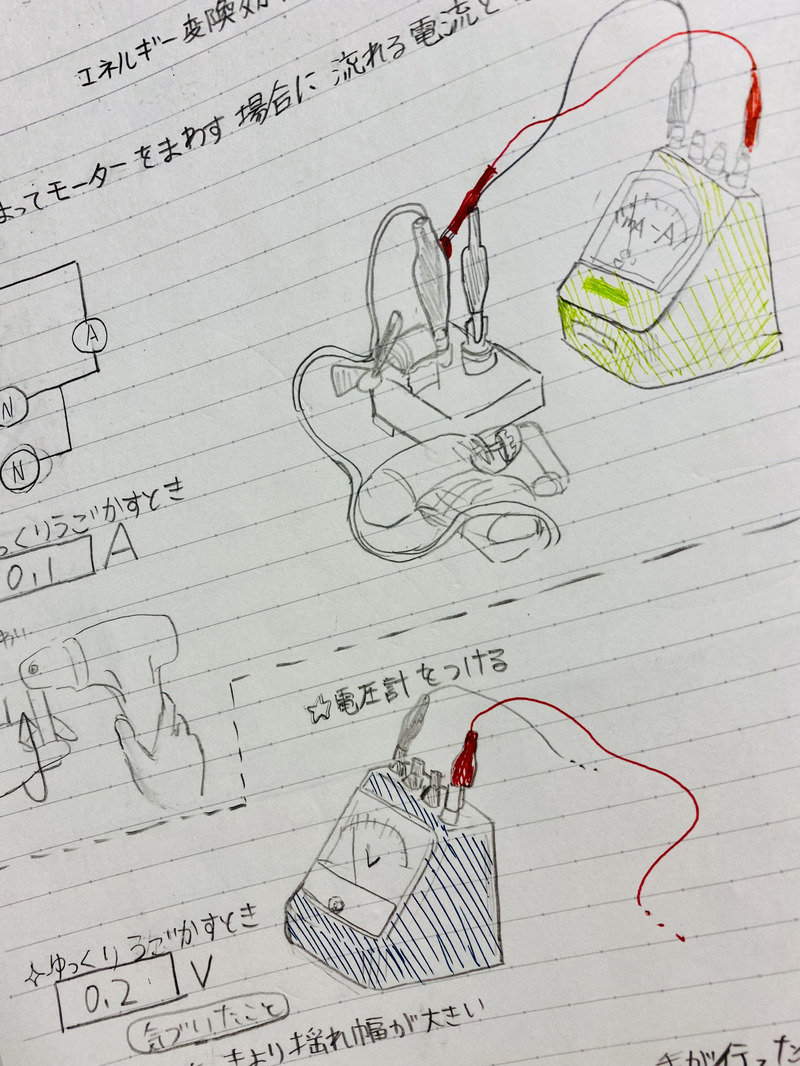 エネルギー変換
よってモーターをまわす場合に流れる電流と
mA-A
A
N
N
っくりうごかすとき
0.1 A
☆電圧計をつける
V
☆ゆっくりうごかすとき
0.2 V
気づいたこと
きより揺れ幅が大きい